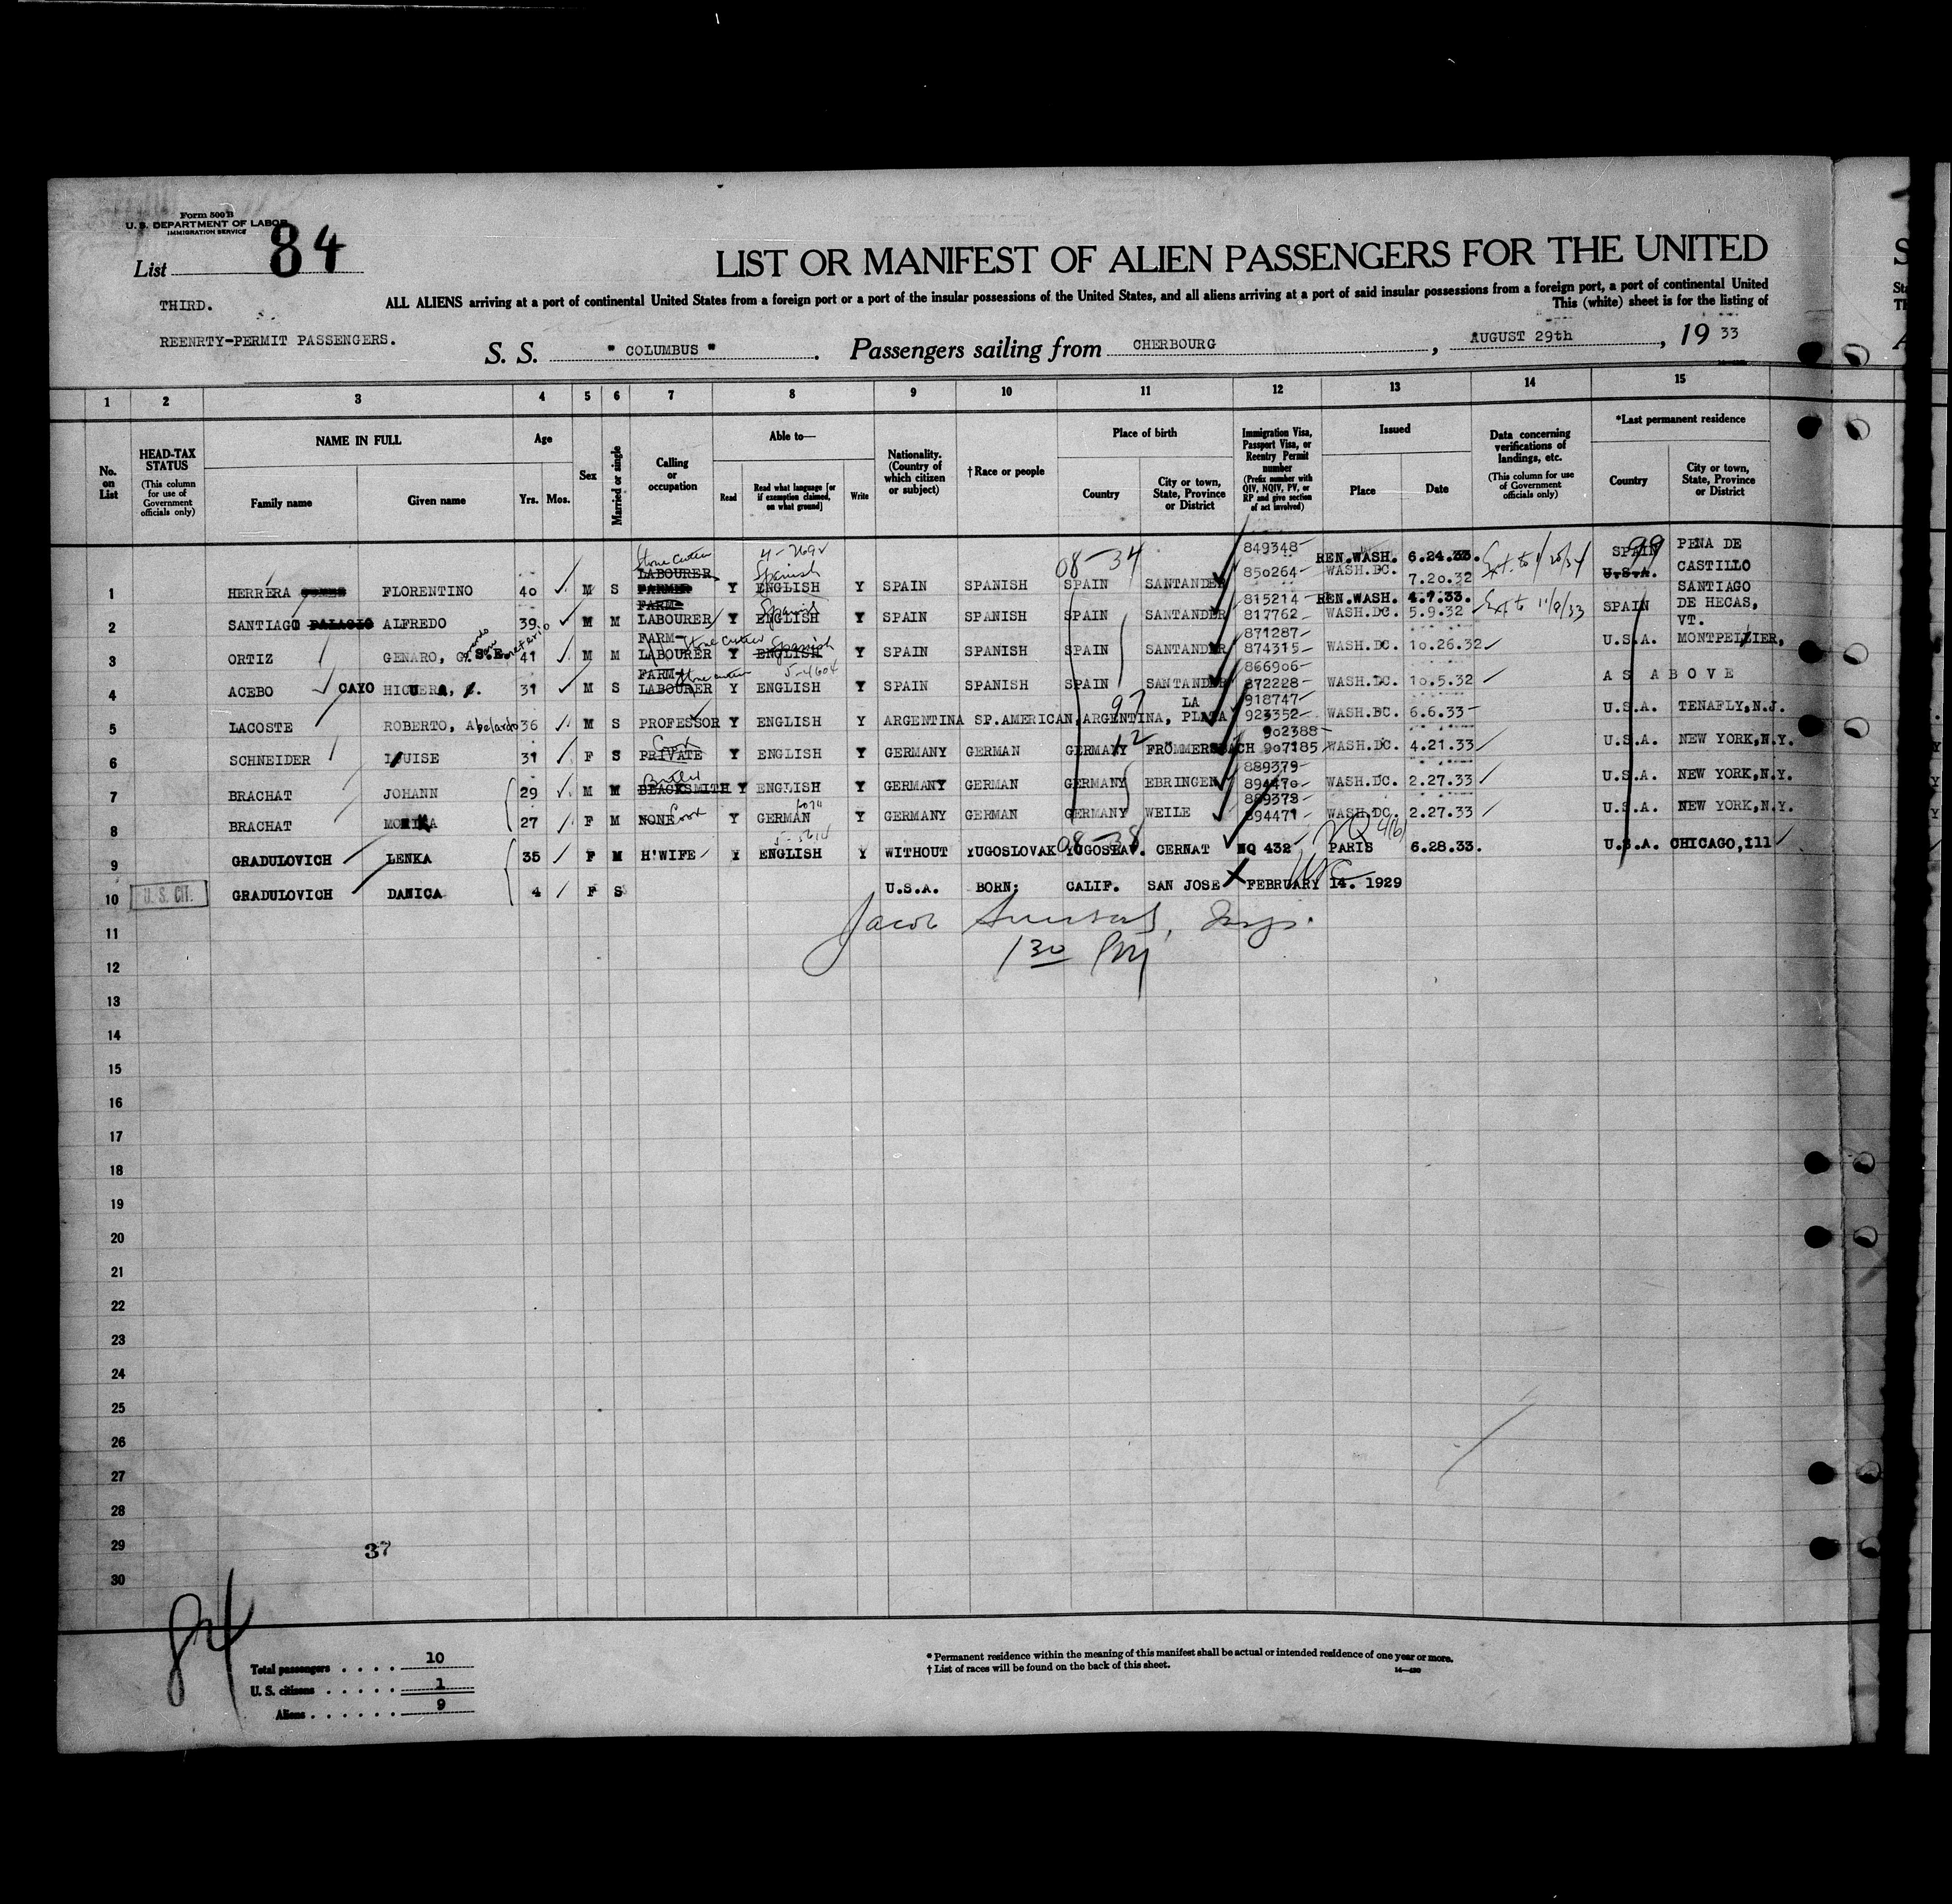 Form 500 B
U. S. DEPARTMENT OF LABOR
IMMIGRATION SERVICE
List 84
LIST OR MANIFEST OF ALIEN PASSENGERS FOR THE UNITED
THIRD.
ALL ALIENS arriving at a port of continental United States from a foreign port or a port of the insular possessions of the United States, and all aliens arriving at a port of said insular possessions from a foreign port, a port of continental United
This (white) sheet is for the listing of
REENRTY-PERMIT PASSENGERS.
S. S. " COLUMBUS " . Passengers sailing from CHERBOURG , AUGUST 29th , 19 33
1 2 3 4 5 6 7 8 9 10 11 12 13 14 15
No. on List
HEAD-TAX STATUS (This column for use of Government officials only)
NAME IN FULL
Family name Given name
Age
Yrs. Mos.
Sex
Married or single
Calling or occupation
Able to—
Read
Read what language [or if exemption claimed, on what ground]
Write
Nationality. (Country of which citizen or subject)
†Race or people
Place of birth
Country
City or town, State, Province or District
Immigration Visa, Passport Visa, or Reentry Permit number (Prefix number with QIV, NQIV, PV, or RP and give section of act involved)
Issued
Place Date
Data concerning verifications of landings, etc. (This column for use of Government officials only)
*Last permanent residence
Country
City or town, State, Province or District
Stone cutter 4-2692 08-34 849348 REN.WASH. 6.24.33. 99 SPAIN PENA DE
LABOURER Spanish 850264 WASH.DC. 7.20.32 Ext. to 1/20/34 U.S.A. CASTILLO
1 HERRERA FLORENTINO 40 M S FARMER Y ENGLISH Y SPAIN SPANISH SPAIN SANTANDER
FARM Spanish 815214 REN.WASH. 4.7.33. SANTIAGO
2 SANTIAGO PALACIO ALFREDO 39 M M LABOURER Y ENGLISH Y SPAIN SPANISH SPAIN SANTANDER 817762 WASH.DC. 5.9.32 Ext to 11/9/33 SPAIN DE HECAS,
VT.
FARM Stone cutter Spanish 871287
3 ORTIZ GENARO, G. S.E. 41 M M LABOURER Y ENGLISH Y SPAIN SPANISH SPAIN SANTANDER 874315 WASH.DC. 10.26.32 U.S.A. MONTPELIER,
FARM Stone cutter 5-4604 866906
4 ACEBO CAYO HIGUERA, 31 M S LABOURER Y ENGLISH Y SPAIN SPANISH SPAIN SANTANDER 872228 WASH.DC. 10.5.32 AS ABOVE
97 LA 918747
5 LACOSTE ROBERTO, Abelardo 36 M S PROFESSOR Y ENGLISH Y ARGENTINA SP.AMERICAN, ARGENTINA, PLATA 923352 WASH.DC. 6.6.33 U.S.A. TENAFLY, N.J.
Cook 12 902388
6 SCHNEIDER LOUISE 31 F S PRIVATE Y ENGLISH Y GERMANY GERMAN GERMANY FROMMERSBACH 907185 WASH.DC. 4.21.33 U.S.A. NEW YORK, N.Y.
Butler 889379
7 BRACHAT JOHANN 29 M M BLACKSMITH Y ENGLISH Y GERMANY GERMAN GERMANY EBRINGEN 894470 WASH.DC. 2.27.33 U.S.A. NEW YORK, N.Y.
889378
8 BRACHAT MONIKA 27 F M NONE Cook Y GERMAN Y GERMANY GERMAN GERMANY WEILE 894471 WASH.DC. 2.27.33 U.S.A. NEW YORK, N.Y.
08-38 NQ 4(b)
9 GRADULOVICH LENKA 35 F M H'WIFE Y ENGLISH Y WITHOUT YUGOSLOVAK YUGOSLAV. CERNAT NQ 432 PARIS 6.28.33. U.S.A. CHICAGO, Ill
10 U. S. CIT. GRADULOVICH DANICA 4 F S U.S.A. BORN; CALIF. SAN JOSE FEBRUARY 14. 1929
11 Jacob Insp.
12 1 30 PM
13
14
15
16
17
18
19
20
21
22
23
24
25
26
27
28
29 37
30
84
Total passengers . . . . 10
U. S. citizens . . . . . 1
Aliens . . . . . . 9
* Permanent residence within the meaning of this manifest shall be actual or intended residence of one year or more.
† List of races will be found on the back of this sheet.